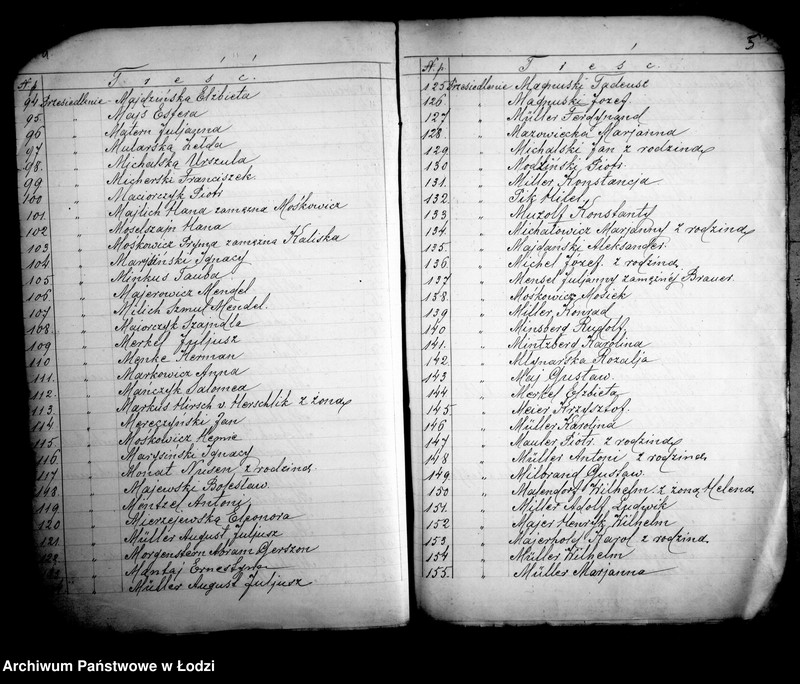 N p. Treść.
94. Przesiedlenie Majdzińska Elżbieta
95. " Majs Estera
96 " Matern Juljanna
97 " Mularska Zelda
98. " Michalska Urszula
99 " Micherski Franciszek.
100 " Maciorczyk Piotr
101. " Majlich Hana zamężna Mośkowicz
102 " Moselszajn Hana
103 " Mośkowicz Fryna zamężna Kaliska
104 " Marysiński Ignacy
105 " Minkus Tauba
106 " Majerowicz Mendel
107 " Milich Szmul Mendel.
108. " Majorczyk Szajndla
109 " Merkel Juljusz
110 " Menke Herman
111. " Markowicz Anna
112. " Mańczyk Salomea
113. " Markus Hirsch v. Herschlik z żoną
114 " Meręczyński Jan
115. " Mośkowicz
116 " Marysiński Ignacy
117 " Monat Nusen z rodziną
118 " Majewski Bolesław.
119 " Mentzel Antoni
120 " Mierzejewska Eleonora
121. " Müller August Juljusz
122 " Morgenstern Abram Gerszon
" Mantaj Ernestyna
" Müller August Juljusz
5
N p. Treść.
125 Przesiedlenie Magnuski Tadeusz
126. " Magnuski Józef
127 " Müller Ferdynand
128. " Mazowiecka Marjanna
129 " Michalski Jan z rodziną
130 " Modziński Piotr
131. " Miller Konstancja
132. " Pik Hiler
133 " Muzolf Konstanty
134. " Michałowicz Marjanny z rodziną
135. " Majdański Aleksander
136 " Michel Józef z rodziną
137 " Mensel Juljanny zamężnej Brauer.
138. " Mośkowicz Mosiek
139 " Miller Konrad
140 " Minsberg Rudolf
141. " Mintzberg Karolina
142. " Młynarska Rozalja
143 " Maj Gustaw
144 " Merkel Elżbieta
145. " Meier Krzysztof
146 " Müller Karolina
147 " Mauter Piotr z rodziną
148 " Müller Antoni z rodziną
149 " Milbrand Gustaw
150 " Malendorf Wilhelm z żoną Heleną
151. " Miller Adolf Ludwik
152 " Majer Henryk Wilhelm
153 " Majerhold Karol z rodziną
154 " Müller Wilhelm
155. " Müller Marjanna
Archiwum Państwowe w Łodzi